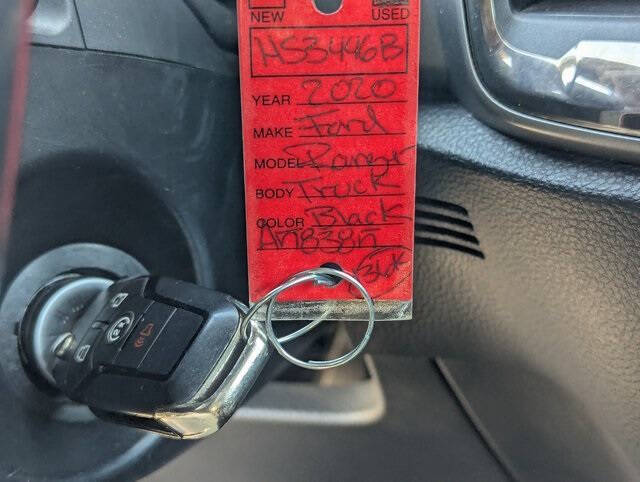 NEW USED
HS3446B
YEAR 2020
MAKE Ford
MODEL Ranger
BODY Truck
COLOR Black